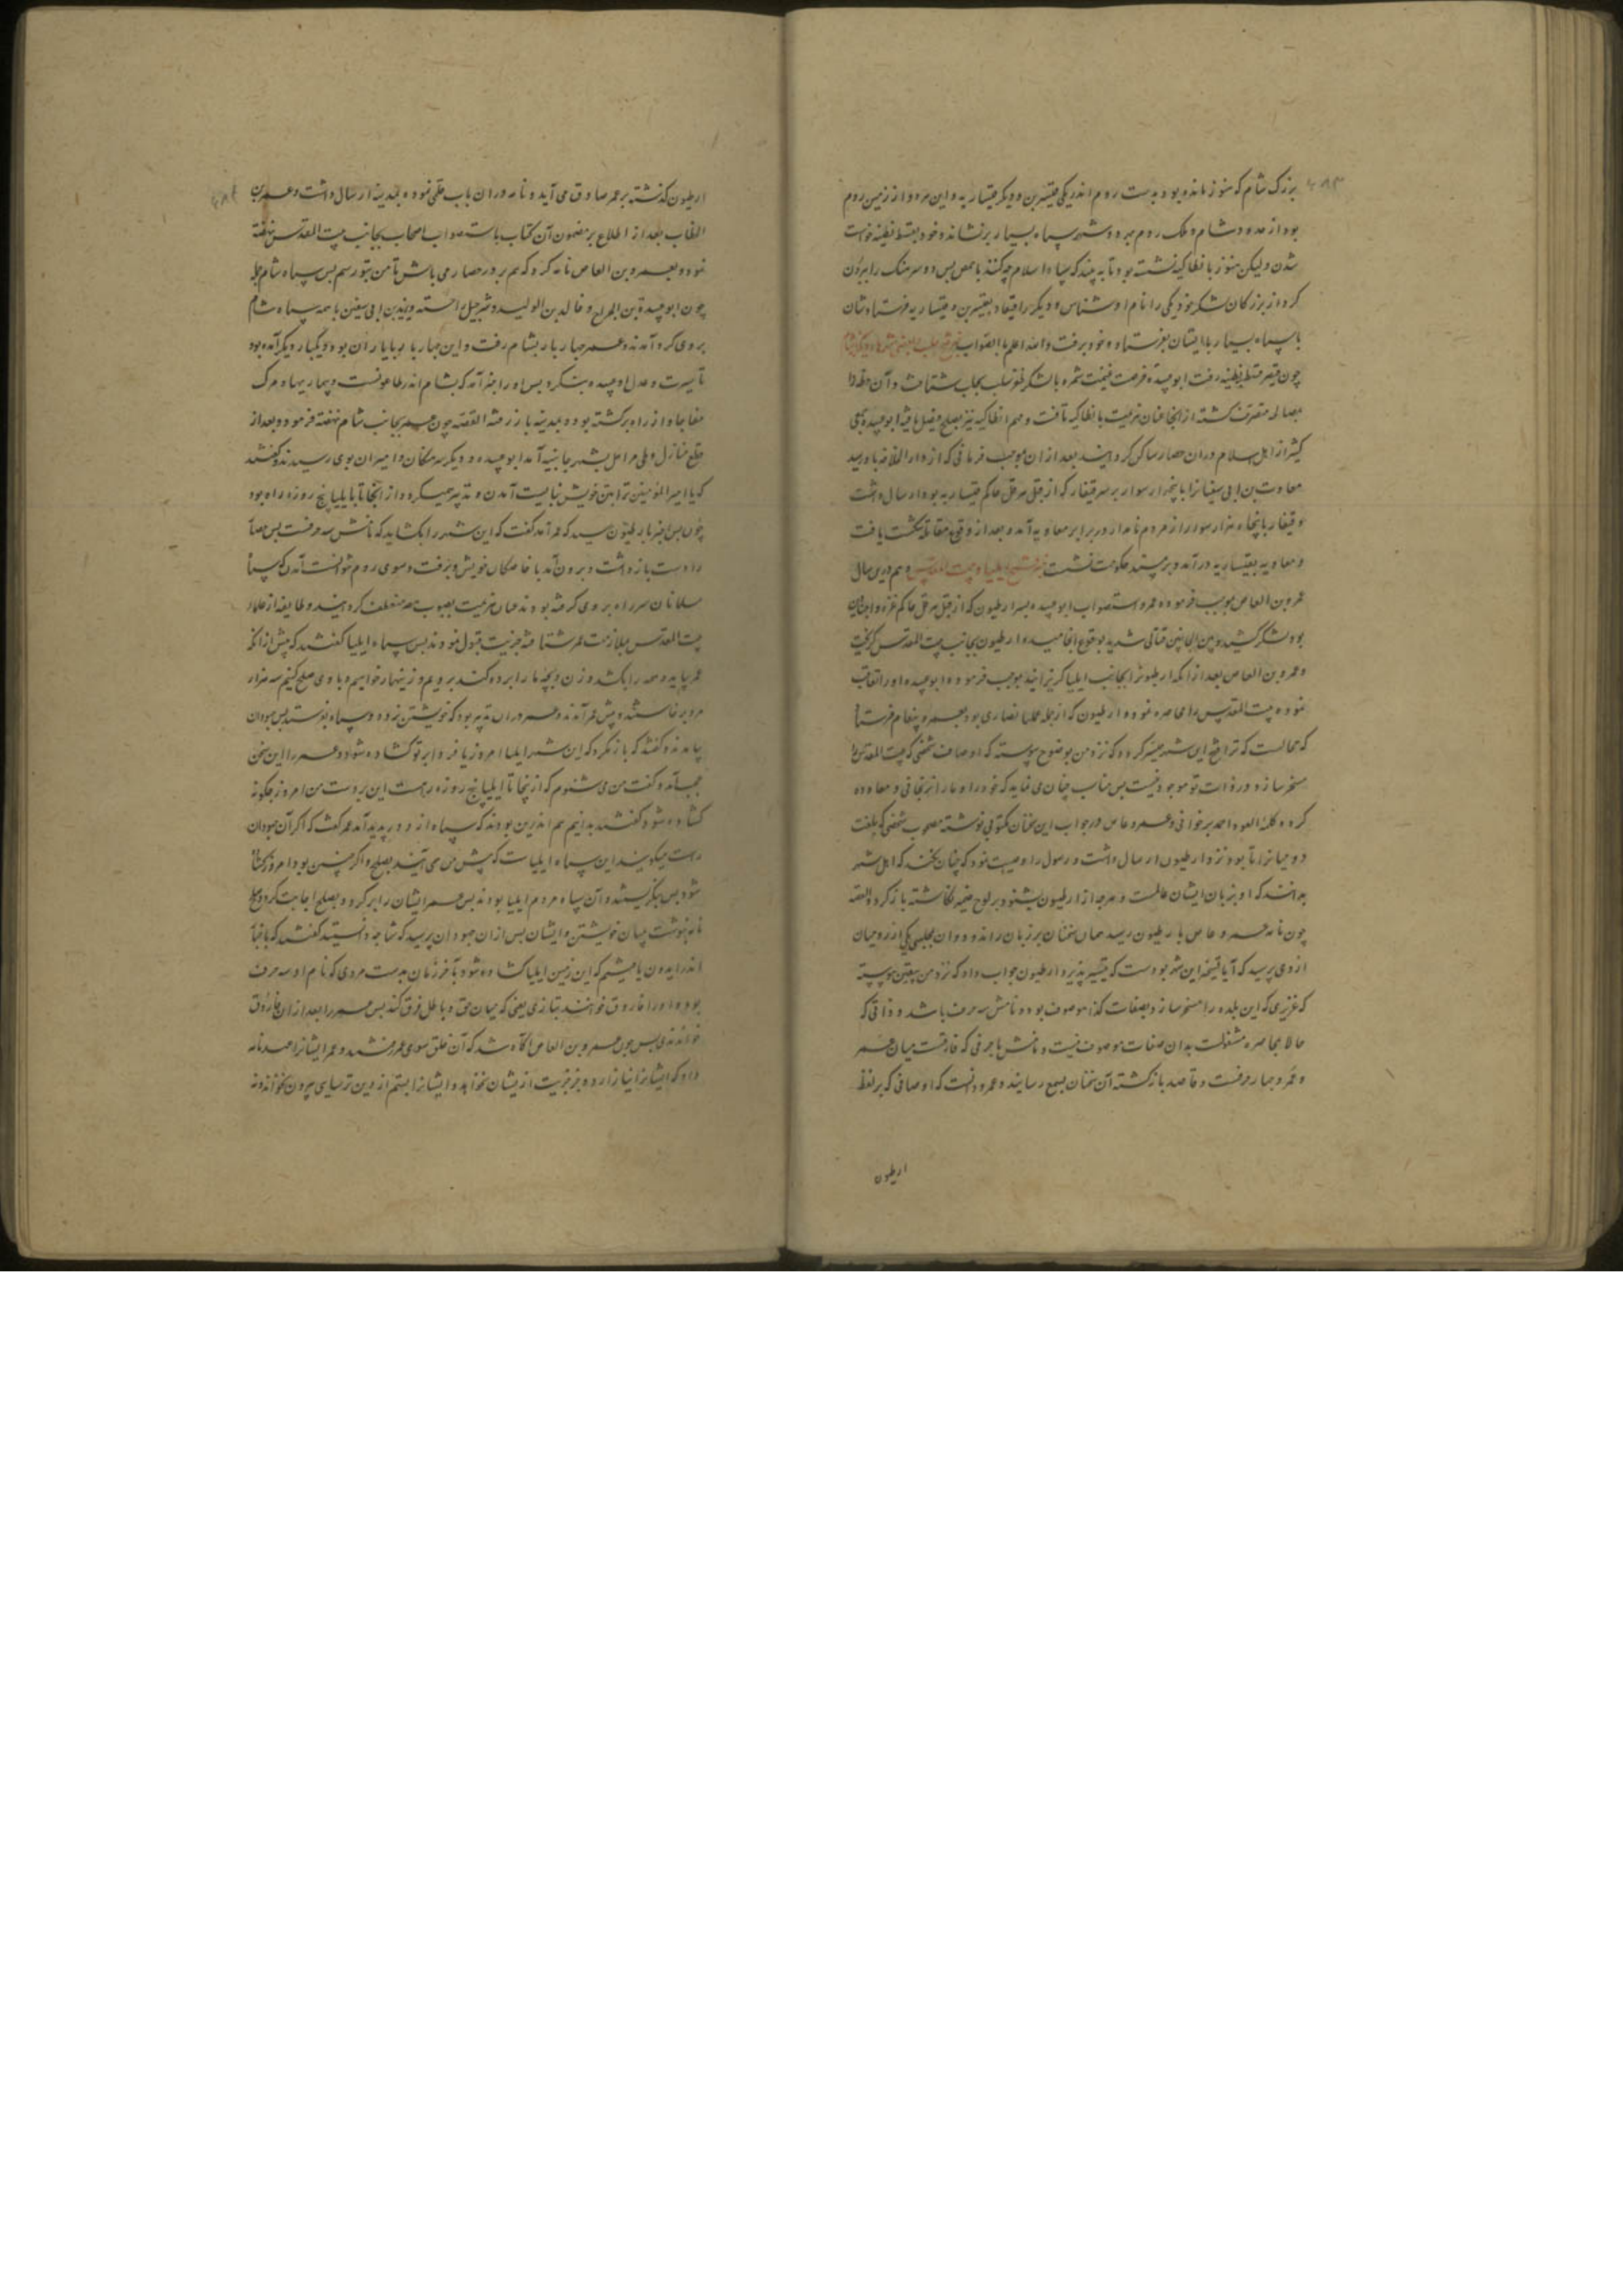 بزرک شام که هنوز مانده بود بدست روم اندر یکی قنسرین و دیکر قیساریه و این هر دو از زمین روم
بود از حدود شام و ملک روم بهر دو شهر سپاه بسیار بنشاند و خود بقسطنطنیه خواست
شدن ولیکن هنوز بانطاکیه نشسته بود تا به بیند که سپاه اسلام چه کنند با حمص پس دو سرهنک را بیرون
کرد از بزرکان لشکر خود یکی را نام ارشناس و دیکر را قیقار بقنسرین و قیساریه فرستادشان
با سپاه بسیار با ایشان بفرستاد و خود برفت والله اعلم بالصواب
چون قیصر بقسطنطنیه رفت ابو عبیده فرصت غنیمت شمرده با لشکر بجانب حلب شتافت و آن خطه را
بمصالحه متصرف کشته از انجا عنان عزیمت بانطاکیه تافت و مهم انطاکیه نیز بصلح فیصل یافته ابو عبیده جمعی
کثیر از اهل اسلام در ان حصار ساکن کردانید بعد از ان بموجب فرمانی که از دار الخلافه باو رسید
معاویة بن ابی سفیان را با پنجهزار سوار بر سر قیقار که از قبل هرقل حاکم قیساریه بود ارسال داشت
و قیقار با پنجاه هزار سوار از مردم نامدار در برابر معاویه آمد و بعد از وقوع مقاتله شکست یافت
و معاویه بقیساریه در آمد و بر مسند حکومت نشست ذکر فتح ایلیا و بیت المقدس و هم درین سال
عمرو بن العاص بموجب فرموده عمر و استصواب ابو عبیده بسر ارطیون که از قبل هرقل حاکم غزه و اجنادین
بود لشکر کشید و بین الجانبین قتالی شدید بوقوع انجامید و ارطیون بجانب بیت المقدس کریخت
و عمرو بن العاص بعد از انکه ارطیون را بجانب ایلیا کریزانید بموجب فرموده ابو عبیده او را تعاقب
نموده بیت المقدس را محاصره نمود و ارطیون که از جمله علماء نصاری بود بعمرو پیغام فرستاد
که محالست که ترا فتح این شهر میسر کردد که نزد من بوضوح پیوسته که اوصاف شخصی که بیت المقدس را
مسخر سازد در ذات تو موجود نیست پس مناسب چنان می نماید که خود را و ما را نرنجانی و معاوده
کرده کلمه العود احمد بر خوانی و عمرو عاص در جواب این سخنان مکتوبی نوشته مصحوب شخصی که بلغت
رومیان دانا بود نزد ارطیون ارسال داشت و رسول را وصیت نمود که چنان نکند که اهل شهر
بدانند که او بزبان ایشان عالمست و هرچه از ارطیون بشنود بر لوح ضمیر نکاشته باز کردد القصه
چون نامه عمرو عاص بارطیون رسید همان سخنان بر زبان راند و در ان مجلس یکی از رومیان
از وی پرسید که آیا فتح این شهر بدست که تیسیر پذیرد ارطیون جواب داد که نزد من بیقین پیوسته
که عزیزی که این بلده را مسخر سازد بصفات کذا موصوف بود و نامش سه حرف باشد و ذاتی که
حالا بمحاصره مشغولست بدان صفات موصوف نیست و نامش با حرفی که فارقست میان عمر
و عمرو چهار حرفست و قاصد باز کشته آن سخنان بسمع رسانید و عمرو دانست که اوصافی که بر لفظ
ارطیون
ارطیون کذشته بر عمر صادق می آید و نامه در ان باب قلمی نموده بمدینه ارسال داشت و عمر بن
الخطاب بعد از اطلاع بر مضمون آن کتاب باستصواب اصحاب بجانب بیت المقدس نهضت
نمود و بعمرو بن العاص نامه کرد که هم بر در حصار می باش تا من بتو رسم پس سپاه شام جمله
چون ابو عبیدة بن الجراح و خالد بن الولید و شرحبیل بن حسنه و یزید بن ابی سفین با همه سپاه شام
بر وی کرد آمدند و عمر چهار بار بشام رفت و این چهار بار با یاران بود و یکبار دیکر آمده بود
تا سیرت و عدل ابو عبیده بنکرد پس او را خبر آمد که بشام اندر طاعونست و بیماریها و مرک
مفاجا و از راه برکشته بود و بمدینه باز رفته القصه چون عمر بجانب شام نهضت فرمود و بعد از
قطع منازل و طی مراحل بشهر جابیه آمد ابو عبیده و دیکر سرهنکان و امیران بوی رسیدند و کفتند
که یا امیر المؤمنین ترا بتن خویش نبایست آمدن و تدبیر میکرد و از انجا تا بایلیا پنج روزه راه بود
چون این خبر بارطیون رسید که عمر آمد کفت که این شهر را بکشاید که نامش سه حرفست پس حصار
را دست باز داشت و برون آمد با خاصکان خویش و برفت و سوی روم نتوانست آمدن که سپاه
مسلمانان سر راه بر وی کرفته بودند عنان عزیمت بصوب مصر منعطف کردانید و طایفه از علماء
بیت المقدس بملازمت عمر شتافته جزیت قبول نمودند پس سپاه ایلیا کفتند که پیش از انکه
عمر بیاید و همه را بکشد و زن و بچه ما را برده کند برویم و زینهار خواهیم و با وی صلح کنیم سه هزار
مرد برخاستند و پیش عمر آمدند و عمر در ان تدبیر بود که خویشتن رود و سپاه بفرستد پس جهودان
بیامدند و کفتند که باز نکرد که این شهر ایلیا امروز یا فردا بر تو کشاده شود و عمر را این سخن
عجب آمد و کفت من می شنوم که از ینجا تا ایلیا پنج روزه راهست این بر دست من امروز چکونه
کشاده شود کفتند بدانیم هم اندرین بودند که سپاه از دور پدید آمد عمر کفت که اکر آن جهودان
راست میکویند این سپاه ایلیاست که پیش من می آیند بصلح و اکر چنین بود امروز کشاده
شود پس بنکریستند و آن سپاه مردم ایلیا بودند پس عمر ایشان را بر کرد و بصلح اجابت کرد و صلح
نامه بنوشت میان خویشتن و ایشان پس از ان جهودان پرسید که شما چه دانستید کفتند که ما بکتاب
اندر ایدون یافتیم که این زمین ایلیا کشاده شود بآخر زمان بدست مردی که نام او سه حرف
بود و او را فاروق خوانند بتازی یعنی که میان حق و باطل فرق کند پس عمر را بعد از ان فاروق
خواندندی پس چون عمرو بن العاص آکاه شد که آن خلق سوی عمر شدند و عمر ایشانرا عهد نامه
داد که ایشانرا نیازارد و بجز جزیت از یشان نخواهد و ایشانرا بستم از دین ترسایی بیرون نخواند و نه